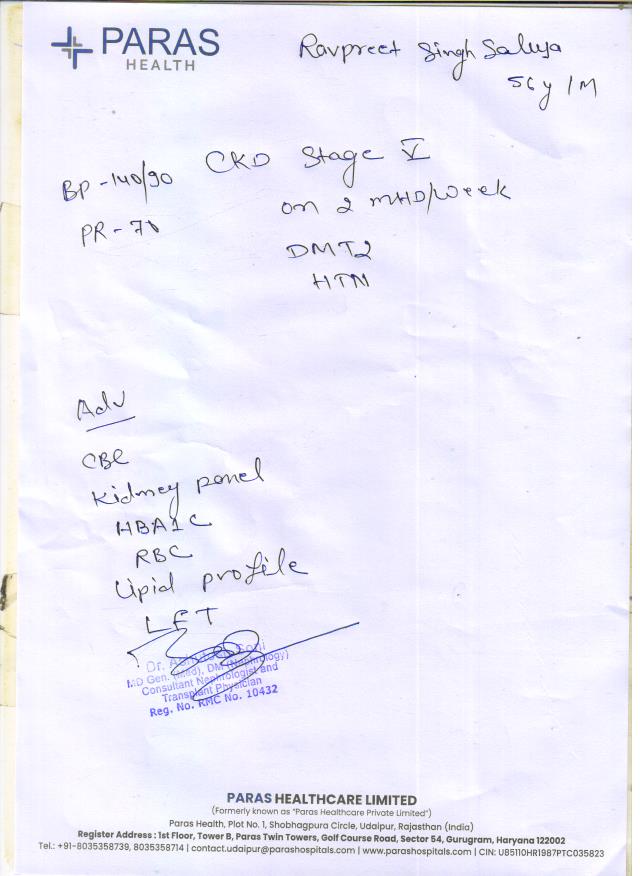 PARAS
HEALTH
Ravpreet Singh Saluja
56y / M
BP - 140/90
CKD Stage V
PR - 78
on 2 MHD/week
DMT2
HTN
Adv
CBC
Kidney panel
HBA1C
RBC
Lipid profile
LFT
Dr.
MD Gen. (Med), DM (Nephrology)
Consultant Nephrologist and
Transplant Physician
Reg. No. RMC No. 10432
PARAS HEALTHCARE LIMITED
(Formerly known as "Paras Healthcare Private Limited")
Paras Health, Plot No. 1, Shobhagpura Circle, Udaipur, Rajasthan (India)
Register Address : 1st Floor, Tower B, Paras Twin Towers, Golf Course Road, Sector 54, Gurugram, Haryana 122002
Tel.: +91-8035358739, 8035358714 | contact.udaipur@parashospitals.com | www.parashospitals.com | CIN: U85110HR1987PTC035823